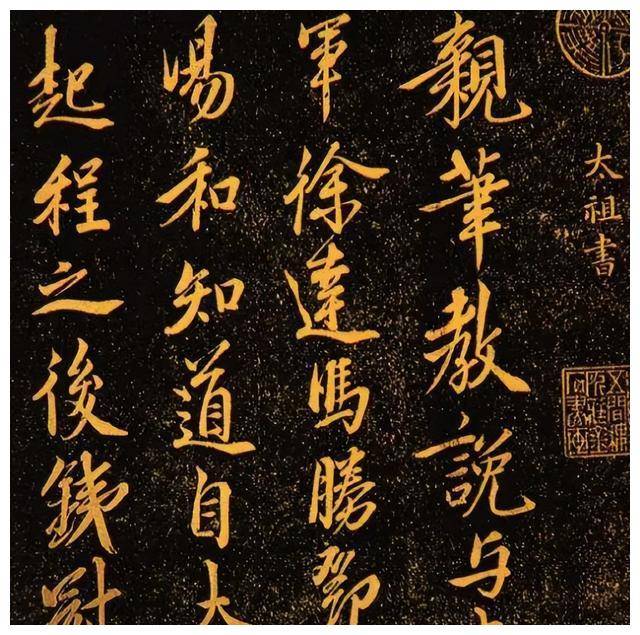 太祖書
親筆教說与
軍徐達馮勝鄧
湯和知道自大
起程之後